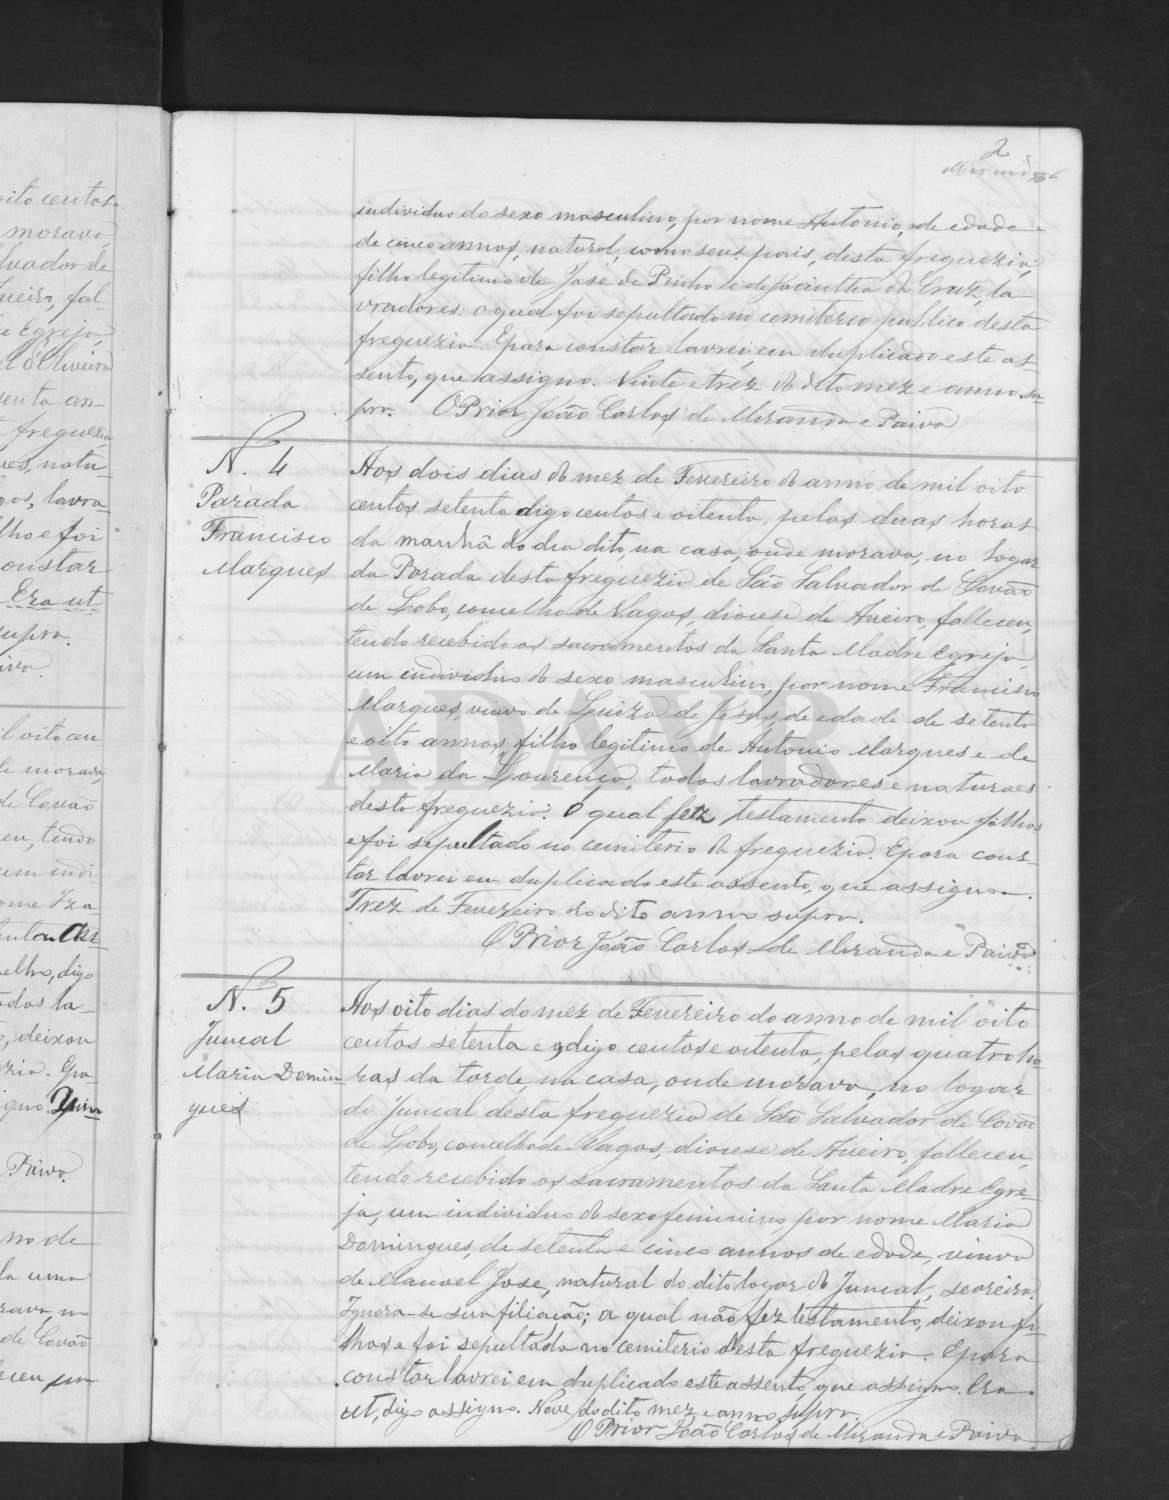 ito centos
morava
lvador de
ueiro, fal-
Egreja
d'Oliveira
enta an-
freguezia
es, natu-
gos, lavra-
lho e foi
onstar
Era ut
supra.
aiva
l oito cen
morava,
de Covão
eu, tendo
um indi-
ome Fra
elho, digo
odos la-
o, deixou
zia. Epa-
igno.
Paiva.
no de
la uma
rava, no
de Covão
eceu um
2
individuo do sexo masculino, por nome Antonio, de edade
de cinco annos, natural, como seus pais, desta freguezia,
filho legitimo de José de Pinho e de Jacintha da Cruz, la-
vradores: o qual foi sepultado no cemiterio publico desta
freguezia. E para constar lavrei em duplicado este as-
sento, que assigno. Vinte e trez do dito mez e anno su-
pra. O Prior João Carlos de Miranda e Paiva
N. 4
Parada
Francisco
Marques
Aos dois dias do mez de Fevereiro do anno de mil oito
centos setenta digo centos e oitenta, pelas duas horas
da manhã do dia dito, na casa, onde morava, no logar
da Parada desta freguezia de São Salvador de Covão
de Lobo, concelho de Vagos, diocese de Aveiro, falleceu,
tendo recebido os sacramentos da Santa Madre Egreja,
um individuo do sexo masculino, por nome Francisco
Marques, viuvo de Luiza de Jesus, de edade de setenta
e oito annos, filho legitimo de Antonio Marques e de
Maria da Lourença, todos lavradores e naturaes
desta freguezia: O qual fez testamento deixou filhos
e foi sepultado no cemiterio da freguezia. E para cons-
tar lavrei em duplicado este assento, que assigno.
Trez de Fevereiro do dito anno supra.
O Prior João Carlos de Miranda e Paiva
N. 5
Juncal
Maria Domin
gues
Aos oito dias do mez de Fevereiro do anno de mil oito
centos setenta e digo centos e oitenta, pelas quatro ho-
ras da tarde, na casa, onde morava, no logar
do Juncal desta freguezia de São Salvador de Covão
de Lobo, concelho de Vagos, diocese de Aveiro, falleceu,
tendo recebido os sacramentos da Santa Madre Egre-
ja, um individuo do sexo feminino por nome Maria
Domingues, de setenta e cinco annos de edade, viuva
de Manoel José, natural do dito logar do Juncal, seareira,
Ignora-se sua filiação; a qual não fez testamento, deixou fi-
lhos e foi sepultada no cemiterio desta freguezia. E para
constar lavrei em duplicado este assento, que assigno. Era
ut, digo assigno. Nove do dito mez e anno supra.
O Prior João Carlos de Miranda e Paiva
ADAVR